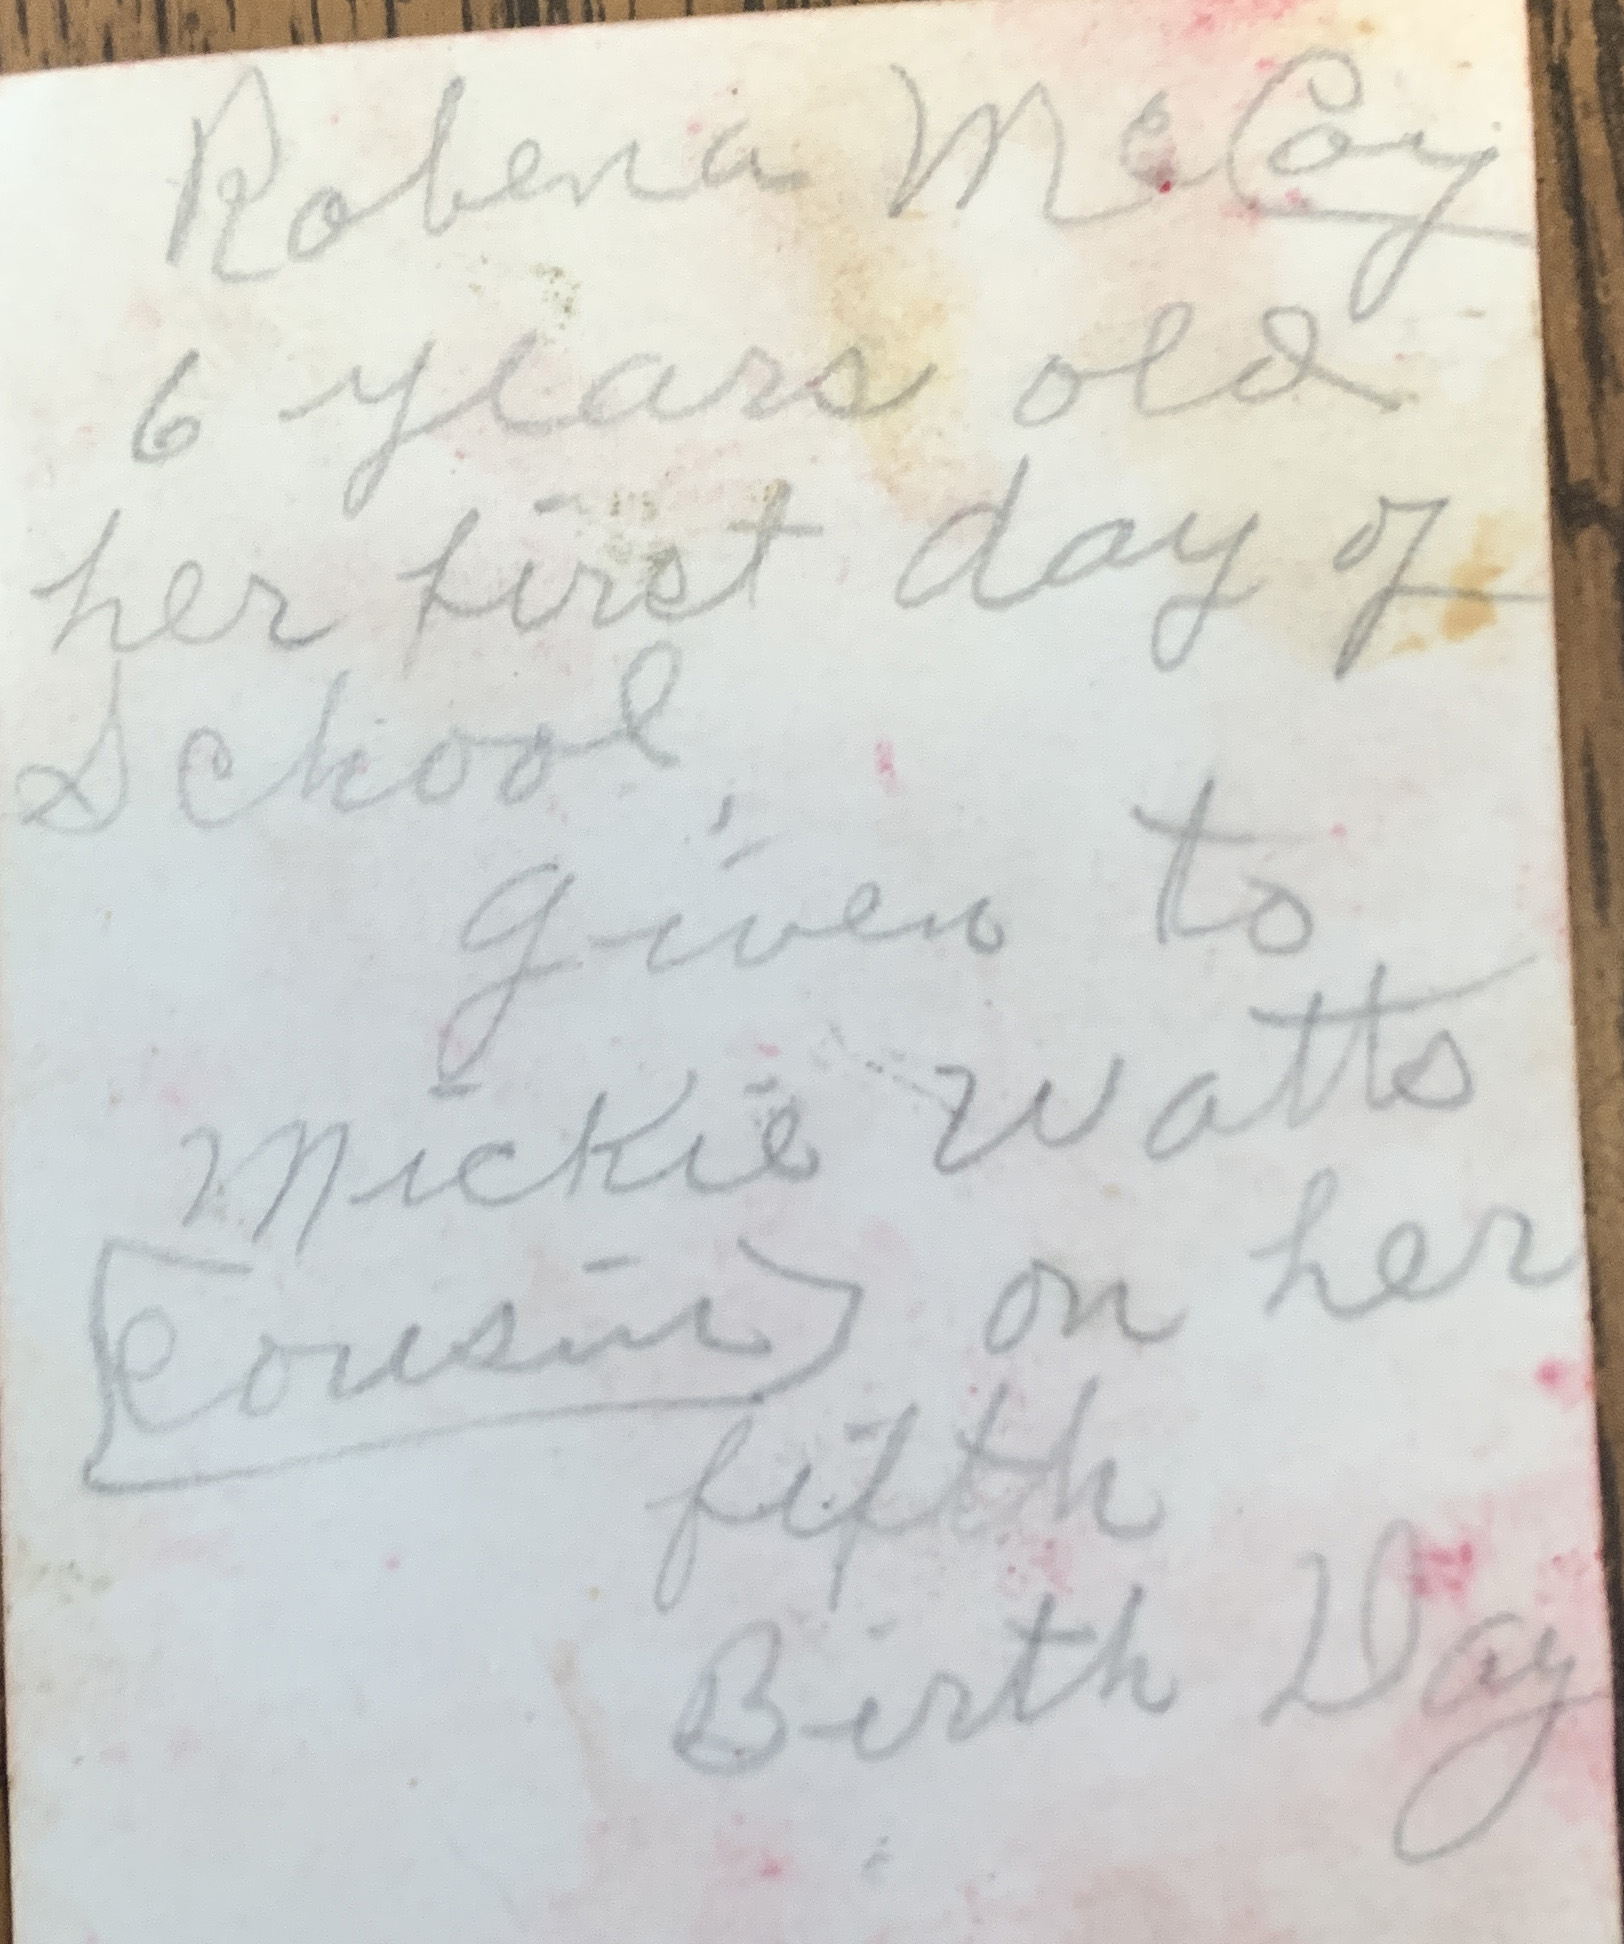 Robena McCoy
6 years old
her first day of
School,
given to
Mickie Watts
[Cousin] on her
fifth
Birth Day